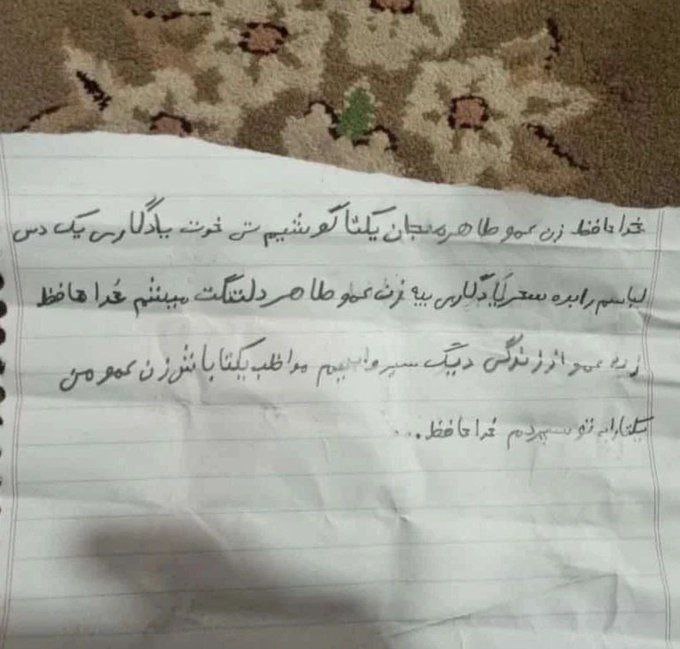 خداحافظ زن عمو طاهره جان یکتا گوشیم تی خوت یادگاری یک دس
لباسم را بده سحر یادگاری بیه زن عمو طاهر دلتنگت میشم خداحافظ
زن عمو از زندگی دیگ سیر مواظب یکتا باش زن عمو من
یکتا را به تو سپردم خداحافظ...